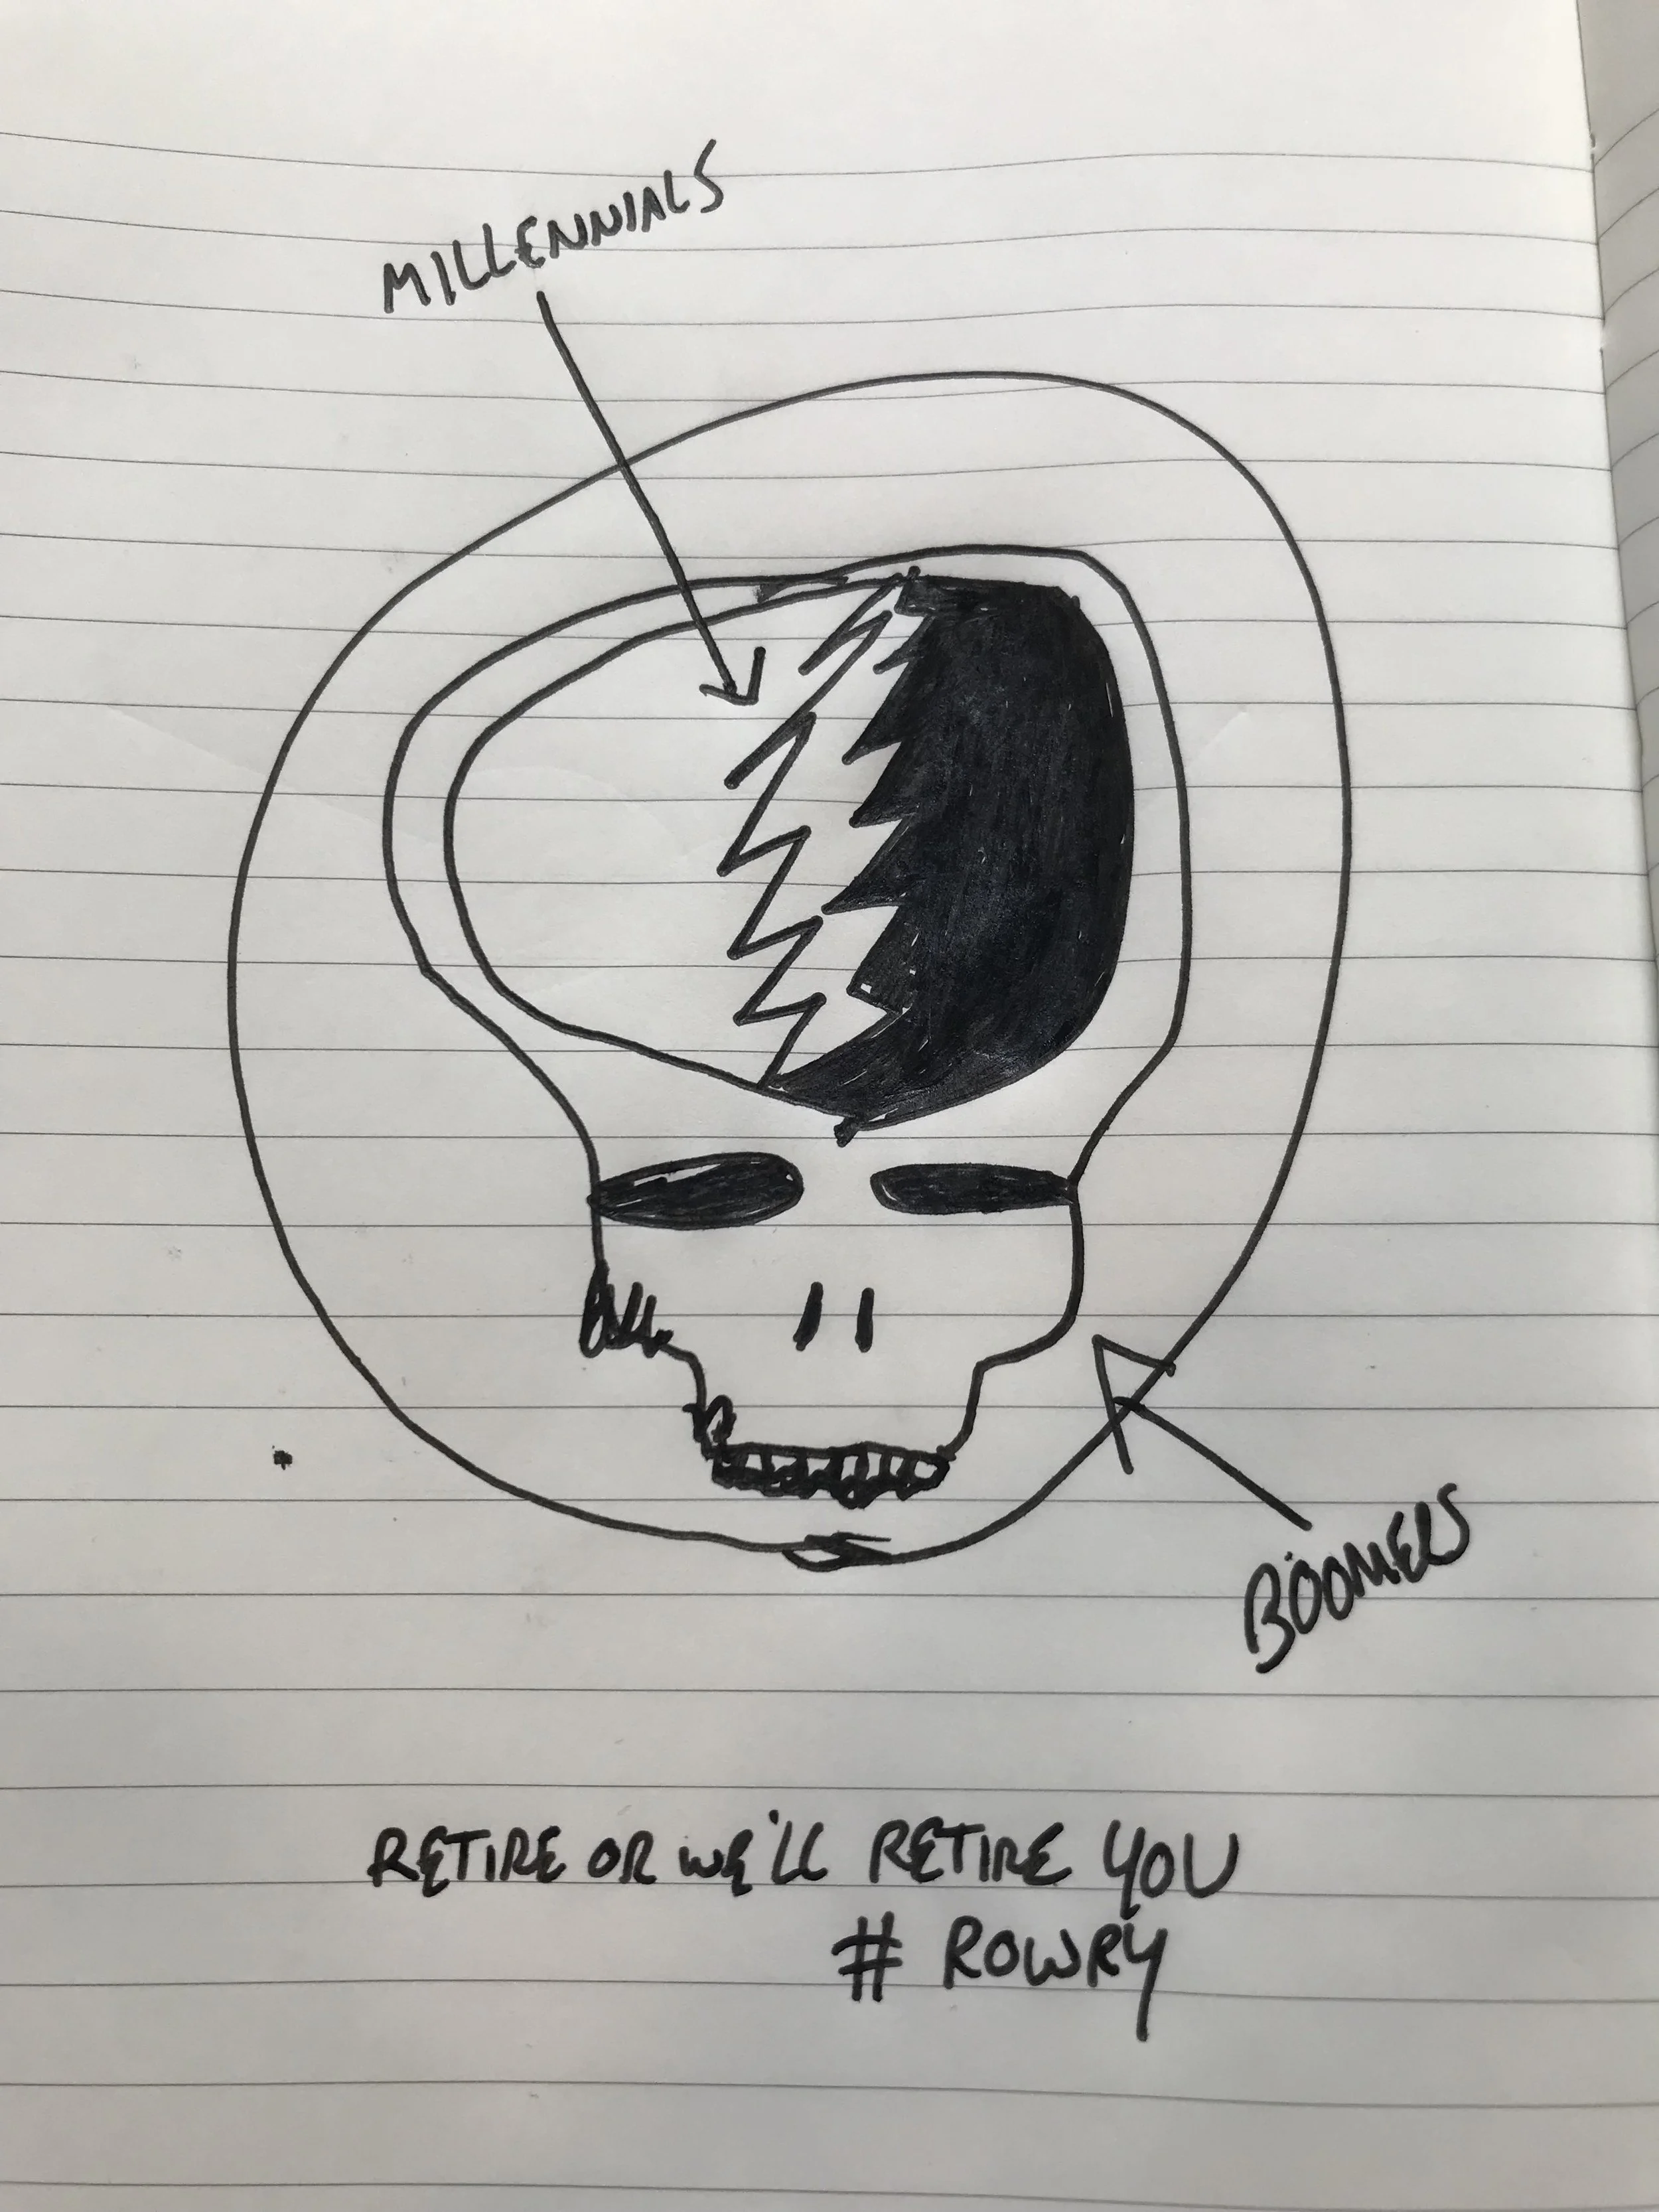 MILLENNIALS
BOOMERS
RETIRE OR WE'LL RETIRE YOU
# ROWRY